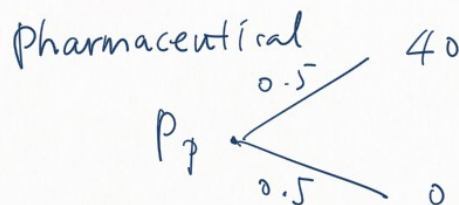 Pharmaceutical
40
0.5
Pp
0.5
0